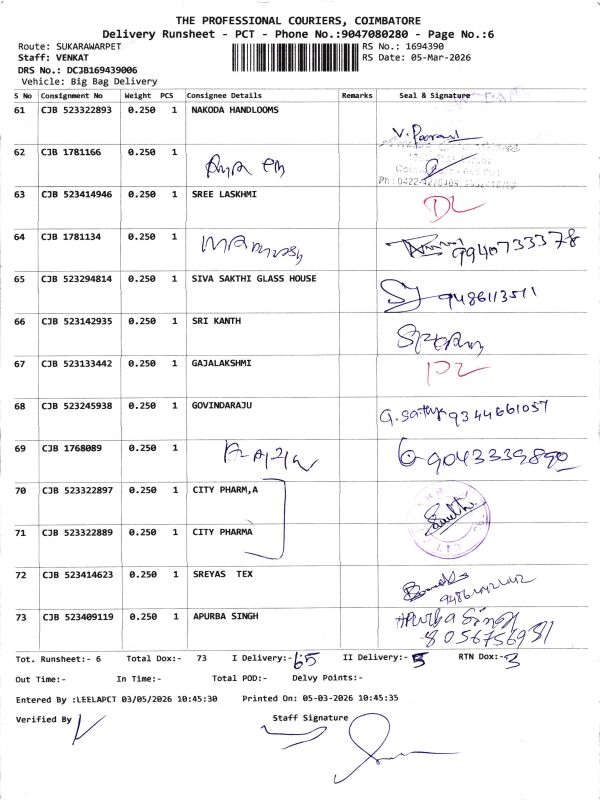 THE PROFESSIONAL COURIERS, COIMBATORE
Delivery Runsheet - PCT - Phone No.:9047080280 - Page No.:6
Route: SUKARAWARPET RS No.: 1694390
Staff: VENKAT RS Date: 05-Mar-2026
DRS No.: DCJB169439006
Vehicle: Big Bag Delivery
S No Consignment No Weight PCS Consignee Details Remarks Seal & Signature
61 CJB 523322893 0.250 1 NAKODA HANDLOOMS
62 CJB 1781166 0.250 1
63 CJB 523414946 0.250 1 SREE LASKHMI DL
64 CJB 1781134 0.250 1 9940733378
65 CJB 523294814 0.250 1 SIVA SAKTHI GLASS HOUSE 9486113511
66 CJB 523142935 0.250 1 SRI KANTH
67 CJB 523133442 0.250 1 GAJALAKSHMI DL
68 CJB 523245938 0.250 1 GOVINDARAJU G. Sathya 9344661057
69 CJB 1768089 0.250 1 9043339890
70 CJB 523322897 0.250 1 CITY PHARM,A
71 CJB 523322889 0.250 1 CITY PHARMA
72 CJB 523414623 0.250 1 SREYAS TEX
73 CJB 523409119 0.250 1 APURBA SINGH APurba Singh
8056756931
Tot. Runsheet:- 6 Total Dox:- 73 I Delivery:- 65 II Delivery:- 5 RTN Dox:- 3
Out Time:- In Time:- Total POD:- Delvy Points:-
Entered By :LEELAPCT 03/05/2026 10:45:30 Printed On: 05-03-2026 10:45:35
Verified By Staff Signature